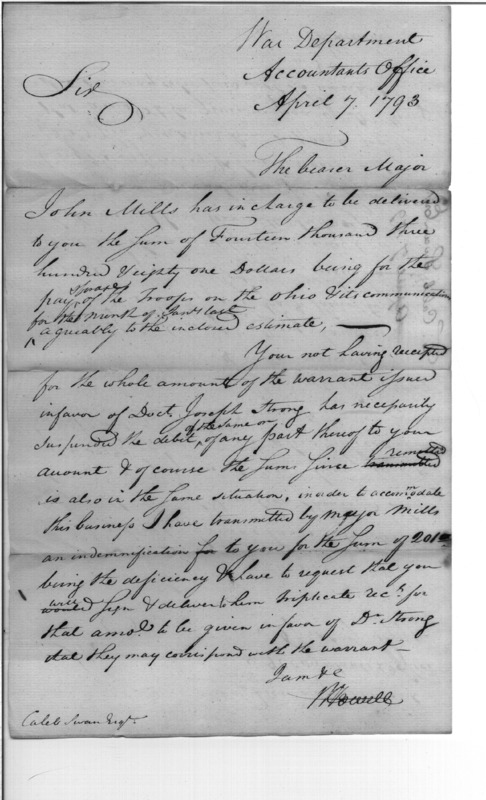 War Department
Accountants Office
April 7. 1793
Sir
The bearer Major
John Mills has in charge to be delivered
to you the Sum of Fourteen thousand three
hundred & eighty one Dollars being for the
pay &c of the Troops on the Ohio & its communication
for the Month of Jany last
agreeably to the inclosed estimate,
Your not having receipted
for the whole amount of the warrant issued
in favor of Doct. Joseph Strong has necessarily
suspended the debit, of the same or of any part thereof to your
account & of course the Sums Since remitted
is also in the Same Situation, in order to accommdate
this business I have transmitted by Major Mills
an indemnification for to you for the Sum of 201
being the deficiency & have to request that you
will Sign & deliver to him triplicate rects for
that amot to be given in favor of Dr Strong
that they may correspond with the warrant
I am &c
J Howell
Caleb Swan Esqr.